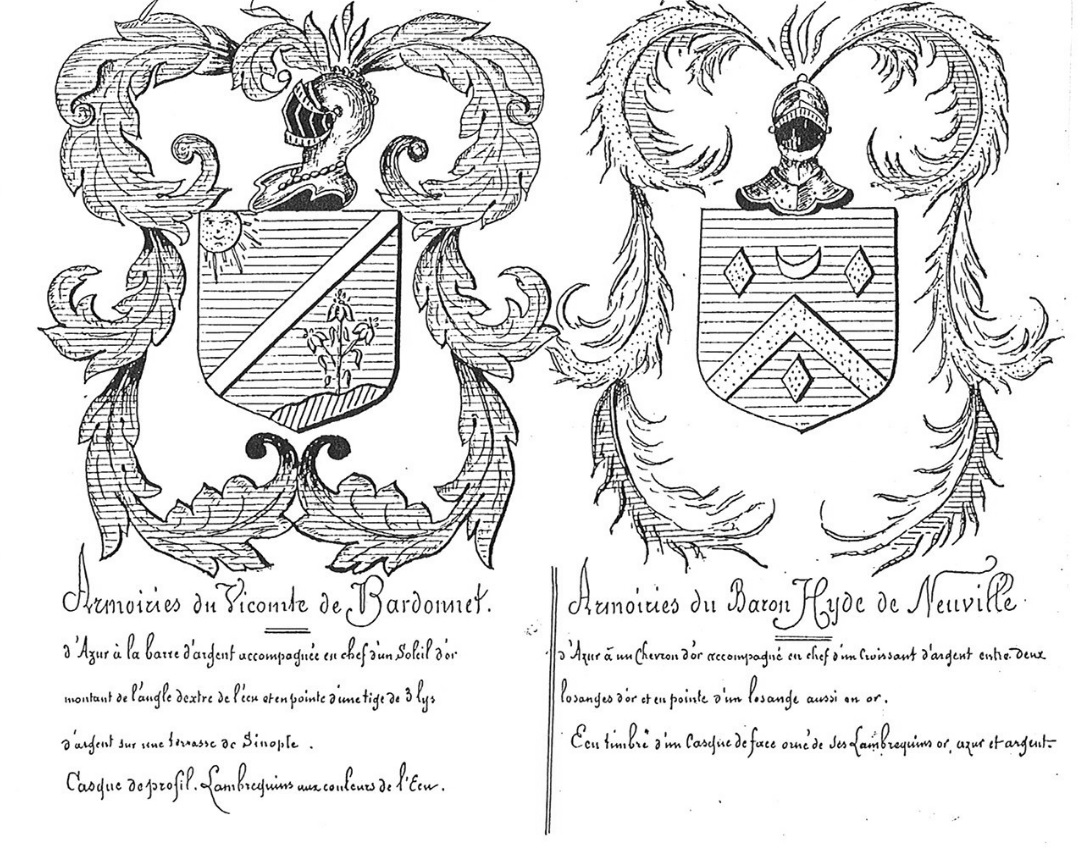 Armoiries du Vicomte de Bardonnet.
d'Azur à la barre d'argent accompagnée en chef d'un Soleil d'or
montant de l'angle dextre de l'écu et en pointe d'une tige de 3 lys
d'argent sur une terrasse de Sinople .
Casque de profil. Lambrequins aux couleurs de l'Ecu.
Armoiries du Baron Hyde de Neuville
d'Azur à un Chevron d'or accompagné en chef d'un Croissant d'argent entre deux
losanges d'or et en pointe d'un losange aussi en or.
Ecu timbré d'un Casque de face orné de ses Lambrequins or, azur et argent.